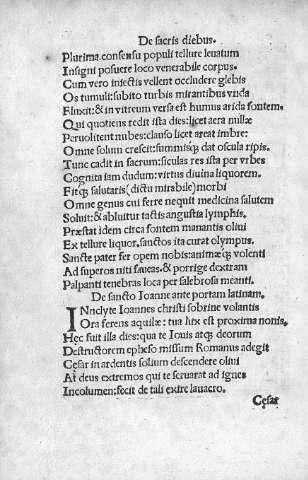 De sacris diebus.
Plurima consensu populi tellure leuatum
Insigni posuere loco venerabile corpus.
Cum vero iniectis vellent occludere glebis
Os tumuli: subito turbis mirantibus vnda
Fluxit: & in vitreum versa est humus arida fontem.
Qui quotiens redit ista dies: licet aera nullæ
Peruolitent nubes: clauso licet areat imbre:
Omne solum crescit: summisq; dat oscula ripis.
Tunc cadit in sacrum: siculas res ista per vrbes
Cognita iam dudum: virtus diuina liquorem.
Fitq; salutaris (dictu mirabile) morbi
Omne genus cui ferre nequit medicina salutem
Soluit: & abluitur tactis angustia lymphis.
Præstat idem circa fontem manantis oliui
Ex tellure liquor. sanctos ita curat olympus.
Sancte pater fer opem nobis: animæq; volenti
Ad superos niti faueas: & porrige dextram
Palpanti tenebras loca per salebrosa meanti.
De sancto Ioanne ante portam latinam.
INclyte Ioannes christi sobrine volantis
Ora ferens aquilæ: tua lux est proxima nonis.
Hęc fuit illa dies: qua te Iouis atq; deorum
Destructorem epheso missum Romanus adegit
Cęsar in ardentis solium descendere oliui
At deus extremos qui te seruarat ad ignes
Incolumen: fecit de tali exire lauacro.
Cęsar